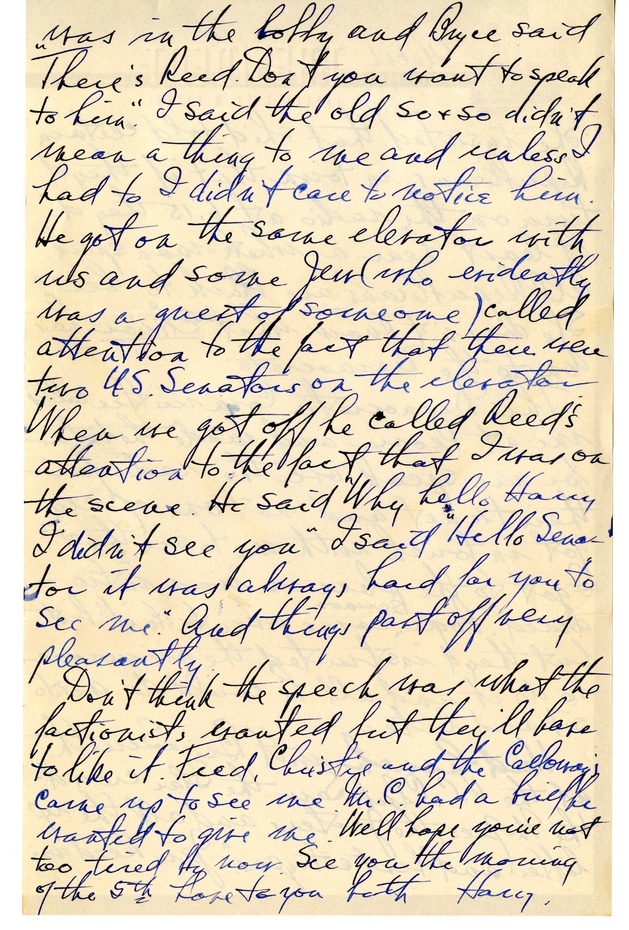 "was in the lobby and Bryce said
There's Reed. Don't you want to speak
to him." I said the old so & so didn't
mean a thing to me and unless I
had to I didn't care to notice him.
He got on the same elevator with
us and some Jew (who evidently
was a guest of someome) called
attention to the fact that there were
two U.S. Senators on the elevator
When we got off he called Reed's
attention to the fact that I was on
the scene. He said "Why hello Harry
I didn't see you" I said "Hello Sena-
tor it was always hard for you to
see me." And things past off very
pleasantly.
Don't think the speech was what the
factionists wanted but they'll have
to like it. Fred, Christie and the Calloways
came up to see me Mr. C. had a
wanted to give me. Well hope you're not
too tired by now. See you the morning
of the 5th Love to you both Harry.